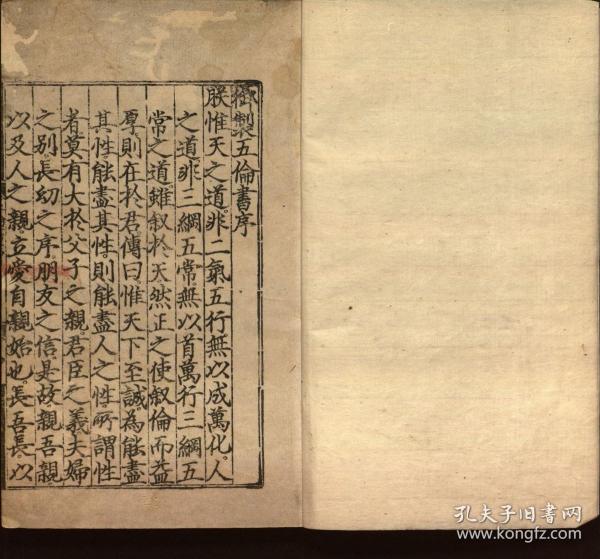 御製五倫書序
朕惟天之道。非二氣五行無以成萬化人
之道非三綱五常無以首萬行三綱五
常之道。雖叙於天然正之使叙倫而益
厚則在於君傳曰惟天下至誠為能盡
其性能盡其性。則能盡人之性所謂性
者莫有大於父子之親。君臣之義夫婦
之别。長幼之序。朋友之信是故親吾親。
以及人之親立愛自親始也。長吾長以
孔夫子旧书网
www.kongfz.com